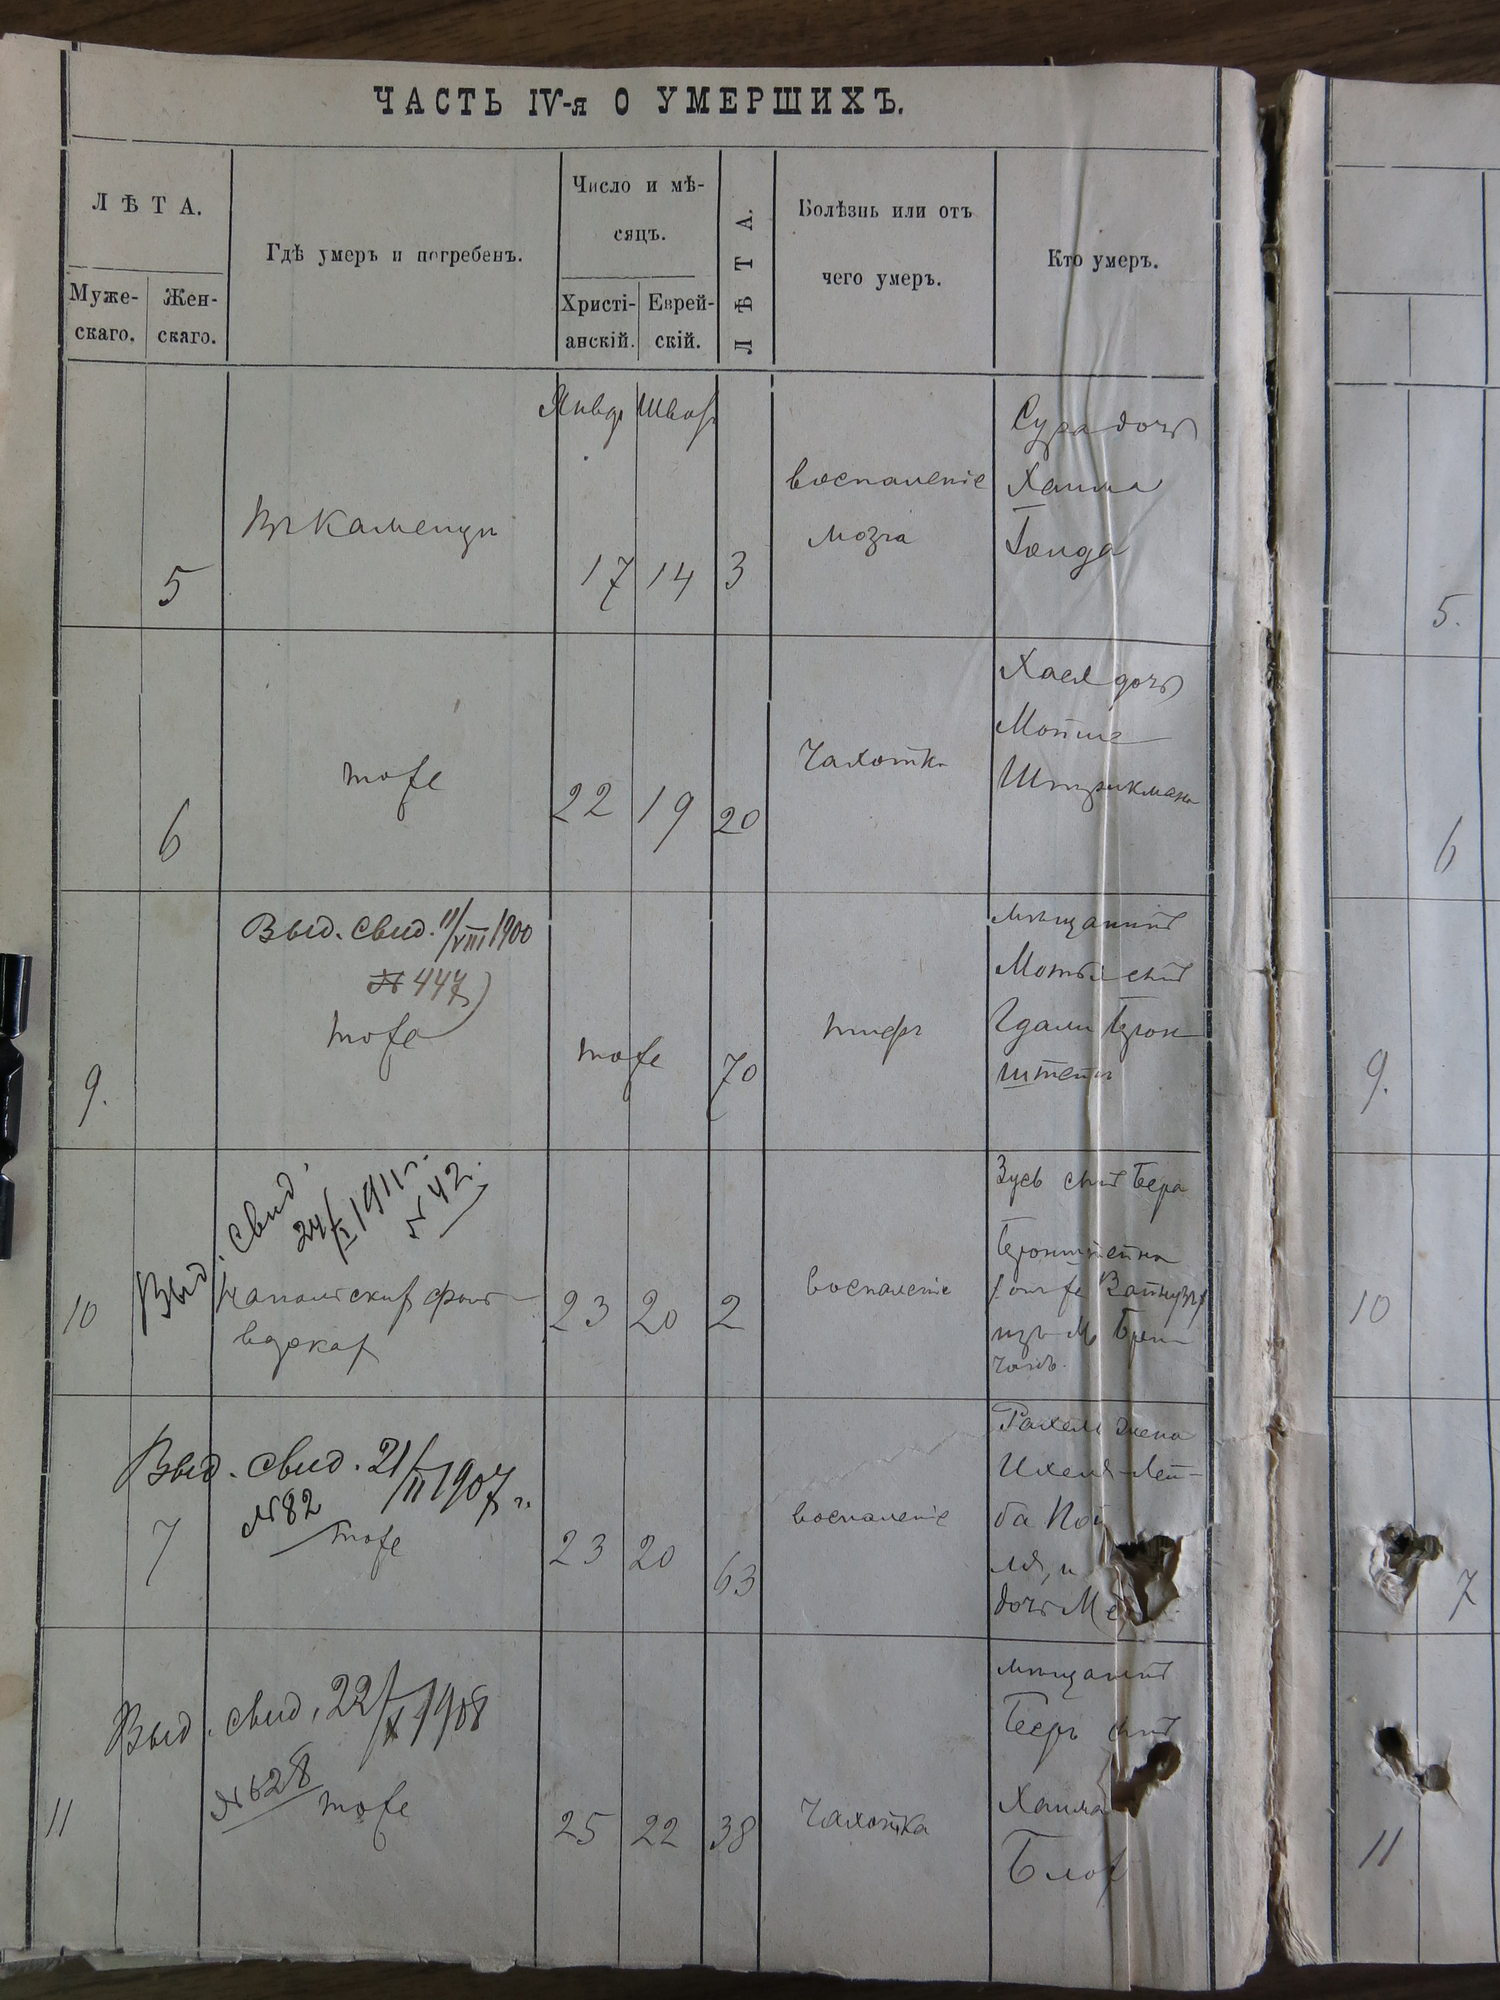 ЧАСТЬ IV-я О УМЕРШИХЪ.
ЛѢТА.
Муже-
скаго.
Жен-
скаго.
Гдѣ умеръ и погребенъ.
Число и мѣ-
сяцъ.
Христі-
анскій.
Еврей-
скій.
ЛѢТА.
Болѣзнь или отъ
чего умеръ.
Кто умеръ.
Январ Шват
5
Въ Каменцѣ
17 14 3
воспаленіе
мозга
Сура дочь
Хаима
5.
6
тоже
22 19 20
Чахотка
Хася дочь
Мотье
Штрикмана
6
9.
Выд. свид. 11/VIII 1900
№ 447
тоже
тоже
70
тифъ
мѣщанинъ
сынъ
Гдали Брон
штейнъ
9.
10
Выд. свид.
24/I 1911 г.
№ 42.
23 20 2
воспаленіе
Зусь сынъ Бера
Бронштейна
изъ м. Бри
чанъ.
10
7
Выд. свид. 21/II 1907 г.
№ 82
тоже
23 20 63
воспаленіе
Рахель жена
Ихеля-Лей-
ба
дочь
7
11
Выд. свид. 22/X 1908
№ 628
тоже
25 22 38
Чахотка
мѣщанинъ
Беръ сынъ
Хаима
11